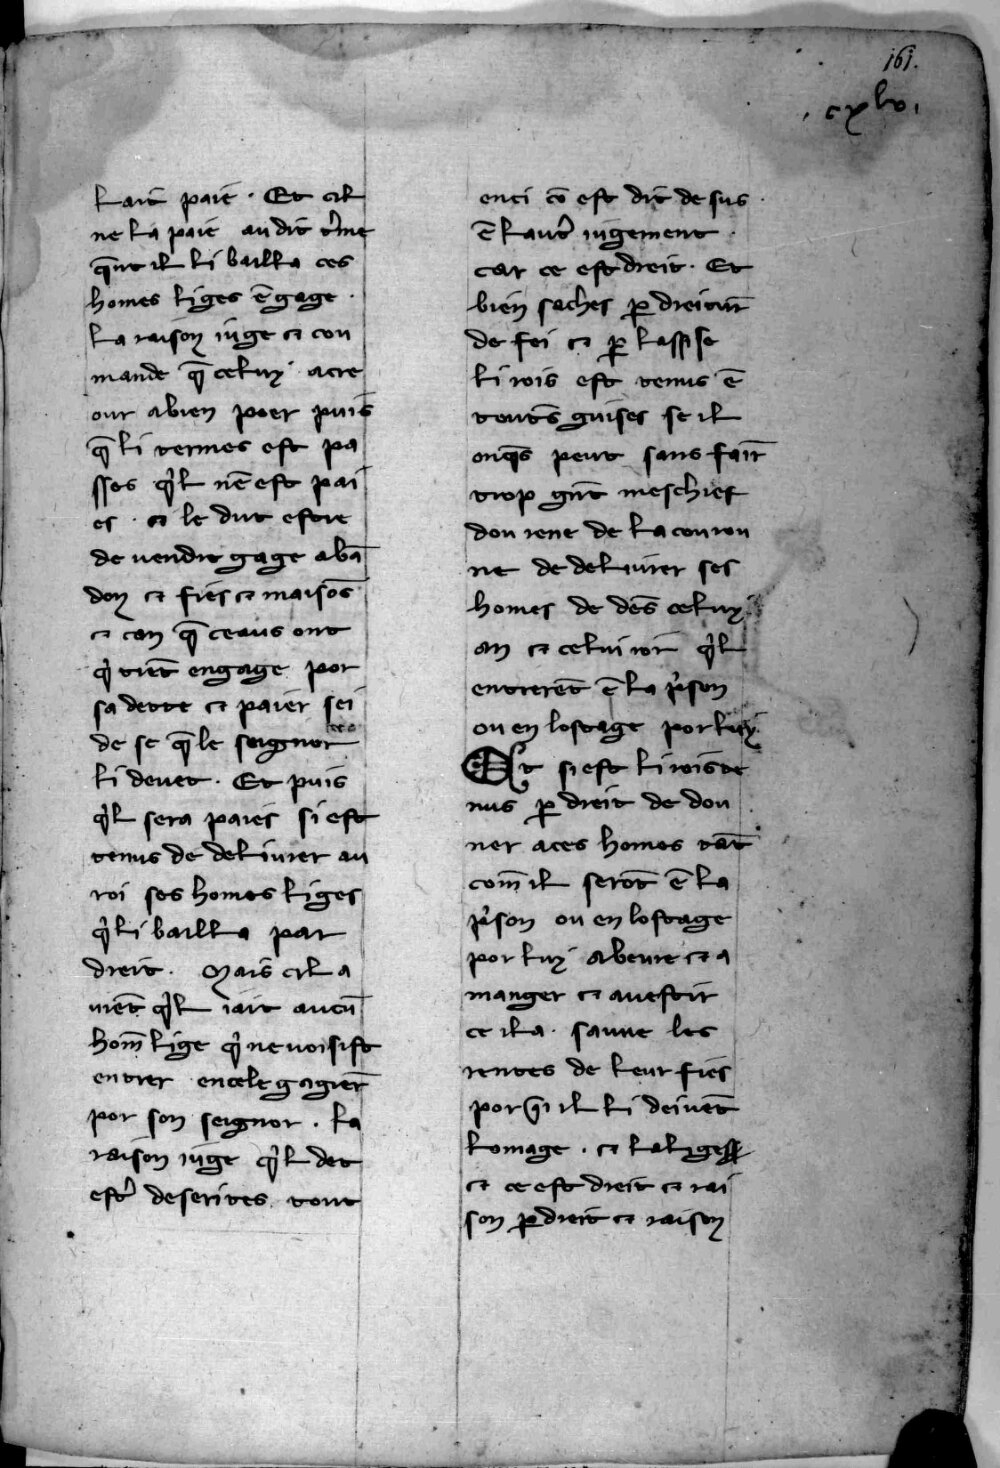 161.
. cxlv .
lait paie · Et cil
ne la paie audit t'me
q̄nt il li bailla ces
homes liges ē gage ·
La raison iuge et con
mande q̄ celuy acre
our a bien poer puis
q̄ li termes est pa
sses q'l nē est pai
es · et le dut estre
de vendre gage abā
don et fies et maisōs
et can q̄ ceaus ont
q' tiēt engage por
sa dette et paier sei
de se q̄ le seignor
li devet · Et puis
q'l sera paies si est
tenus de delivrer au
roi ses homes liges
q' li bailla par
dreit · Mais cil a
viēt q'l iait aucū
hom̄ lige q' ne voisist
entrer en cele gagier̄
por son seignor . La
raison iuge q'l det
est' deserites tout
enci cō est dit desus ·
ē laut' iugement ·
car ce est dreit · Et
bien saches p̱ dreitur̄
de fei et p̱ lasise
li rois est tenus ē
toutes guises se il
onq̄s peut sans fair̄
trop gn̄t meschief
dou rene de la couron
ne de delivrer ses
homes de dēs celuy
an et celui ior q'l
entrerēt ē la p'son
ou en lostage por luy
Et si est li rois te
nus p̱ dreit de don
ner a ces homes tāt
com̄ il serōt ē la
p'son ou en lostage
por luy a beure et a
manger et a vestir
ce il a · sauve les
rentes de leur fies
por q̄i il li deivēt
lomage · et la ligesse
et ce est dreit et rai
son p̱ dreit et raison